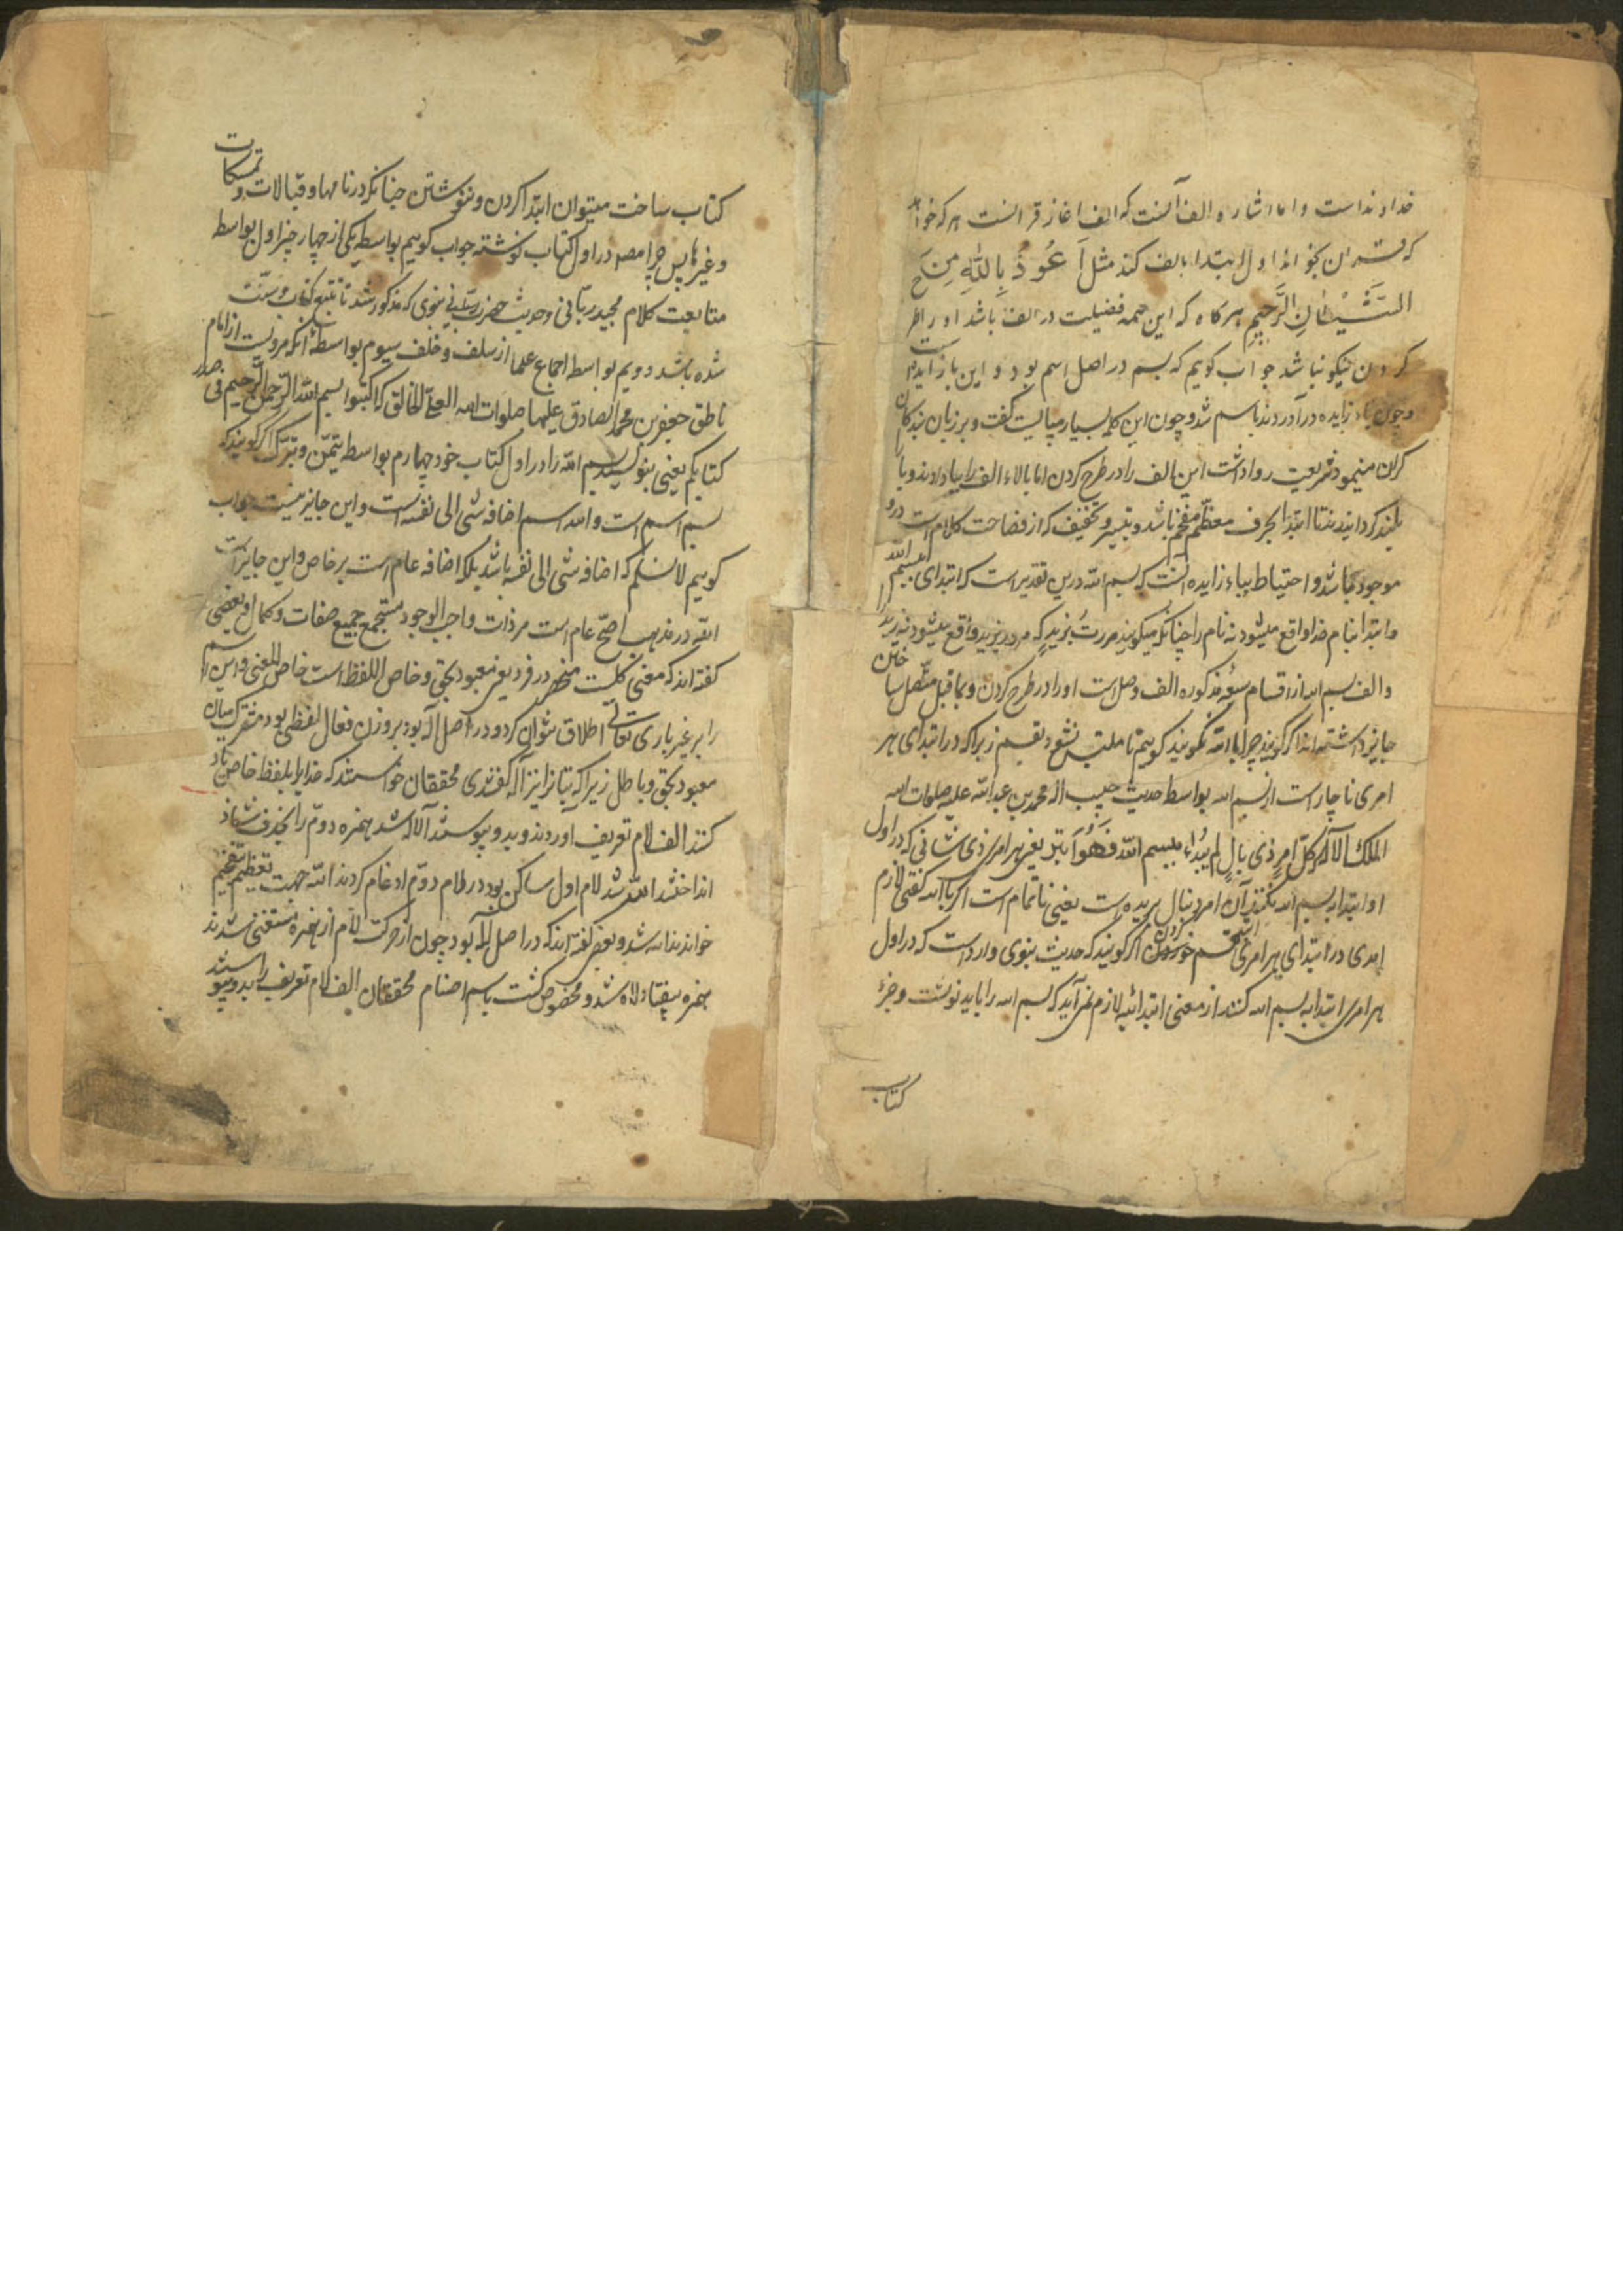 خداوند است و اما اشاره الف آنست که الف اغاز قرانست هر که خواهد
که قران بخواند اول ابتدا بالف کند مثل اَعُوذُ بِاللّهِ مِنَ
الشَّیْطَانِ الرَّجِیمِ هرکاه که این همه فضیلت در الف باشد او را طرح
کردن نیکو نباشد جواب کویم که بسم در اصل اسم بود و این باء زایده است
و چون باء زایده در آوردند باسم شد و چون این کلمه بسیار میبایست کفت و بر زبان بندکان
کران مینمود شریعت روا داشت این الف را در طرح کردن اما بالاء الف را ببا دادند و با را
بلند کردانیدند تا ابتدا بحرف معظّم مفخّم باشد و تیسیر و تخفیف که از فصاحت کلام است درو
موجود باشد و احتیاط بباء زایده آنست که بسم الله درین تقدیر است که ابتدای بسم الله
و ابتدا بنام خدا واقع میشود نه نام را چنانکه میکویند مررتُ بزیدٍ که مرور بزید واقع میشود نه زید را
و الف بسم الله از اقسام سبعه مذکوره الف وصل است او را در طرح کردن و بما قبل متّصل ساختن
جایز داشته اند اکر کویند چرا بالله نکویند کویم تا ملتبس نشود بقسم زیرا که در ابتدای هر
امری ناچار است از بسم الله بواسطه حدیث حبیب اله محمد بن عبدالله علیه صلوات الله
الملک الاله کلّ امرٍ ذی بالٍ لم یُبدَاء ببسم الله فَهُوَ اَبتر یعنی هر امری ذی شانی که در اول
او ابتدا ببسم الله نکنند آن امر دنبال بریده است یعنی ناتمام است اکر بالله کفتی لازم
امدی در ابتدای هر امری قسم خوردن اکر کویند که حدیث نبوی وارد است که در اول
هر امری ابتدا به بسم الله کنند از معنی ابتدائیه لازم نمی آید که بسم الله را باید نوشت و جزءِ
کتاب
کتاب ساخت میتوان ابتدا کردن و ننوشتن چنانکه در نامها و قبالات و تمسکات
و غیرها پس چرا مصه در اول کتاب نوشته جواب کویم بواسطه یکی از چهار چیز اول بواسطه
متابعت کلام مجید ربّانی و حدیث حضرت نبوی که مذکور شد تا تتبع کتاب و سنّت
شده باشد دویم بواسطه اجماع علما از سلف و خلف سیوم بواسطه آنکه مرویست از امام
ناطق جعفر بن محمد الصادق علیهما صلوات الله العلیّ الخالق که اکتبوا بسم الله الرّحمن الرّحیم فی صدر
کتابکم یعنی بنویسید بسم الله را در اول کتاب خود چهارم بواسطه تیمّن و تبرّک اکر کویند که
بسم اسم است و الله اسم اضافه شی الی نفسه است و این جایز نیست جواب
کویم لا نسلم که اضافه شی الی نفسه باشد بلکه اضافه عام است بر خاص و این جایز است
الله در مذهب اصحّ عام است مر ذات واجب الوجود مستجمع جمیع صفات و کمال او بعضی
کفته اند که معنی کلّیست منحصر در فرد یعنی معبود بحق و خاص اللفظ است خاص المعنی و این اسم را
را بر غیر باری تعالی اطلاق نتوان کرد و در اصل اله بود بر وزن فعال لفظی بود مشترک میان
معبود بحق و باطل زیرا که بتانرا نیز آلهه کفتندی محققان خواستند که خدایرا بلفظ خاص یاد
کنند الف لام تعریف آوردند و بدو پیوستند الاله شد همزه دوّم را بحذف
انداختند اللّه شد لام اول ساکن بود در لام دوّم ادغام کردند الله جهت تعظیم تفخیم
خواندند الله شد و بعضی کفته اند که در اصل اله بود چون از حرکت لام از همزه مستغنی شدند
همزه بیفتاد لاه شد و مخصوص کشت باسم اصنام محققان الف لام تعریف را بدو پیوستند